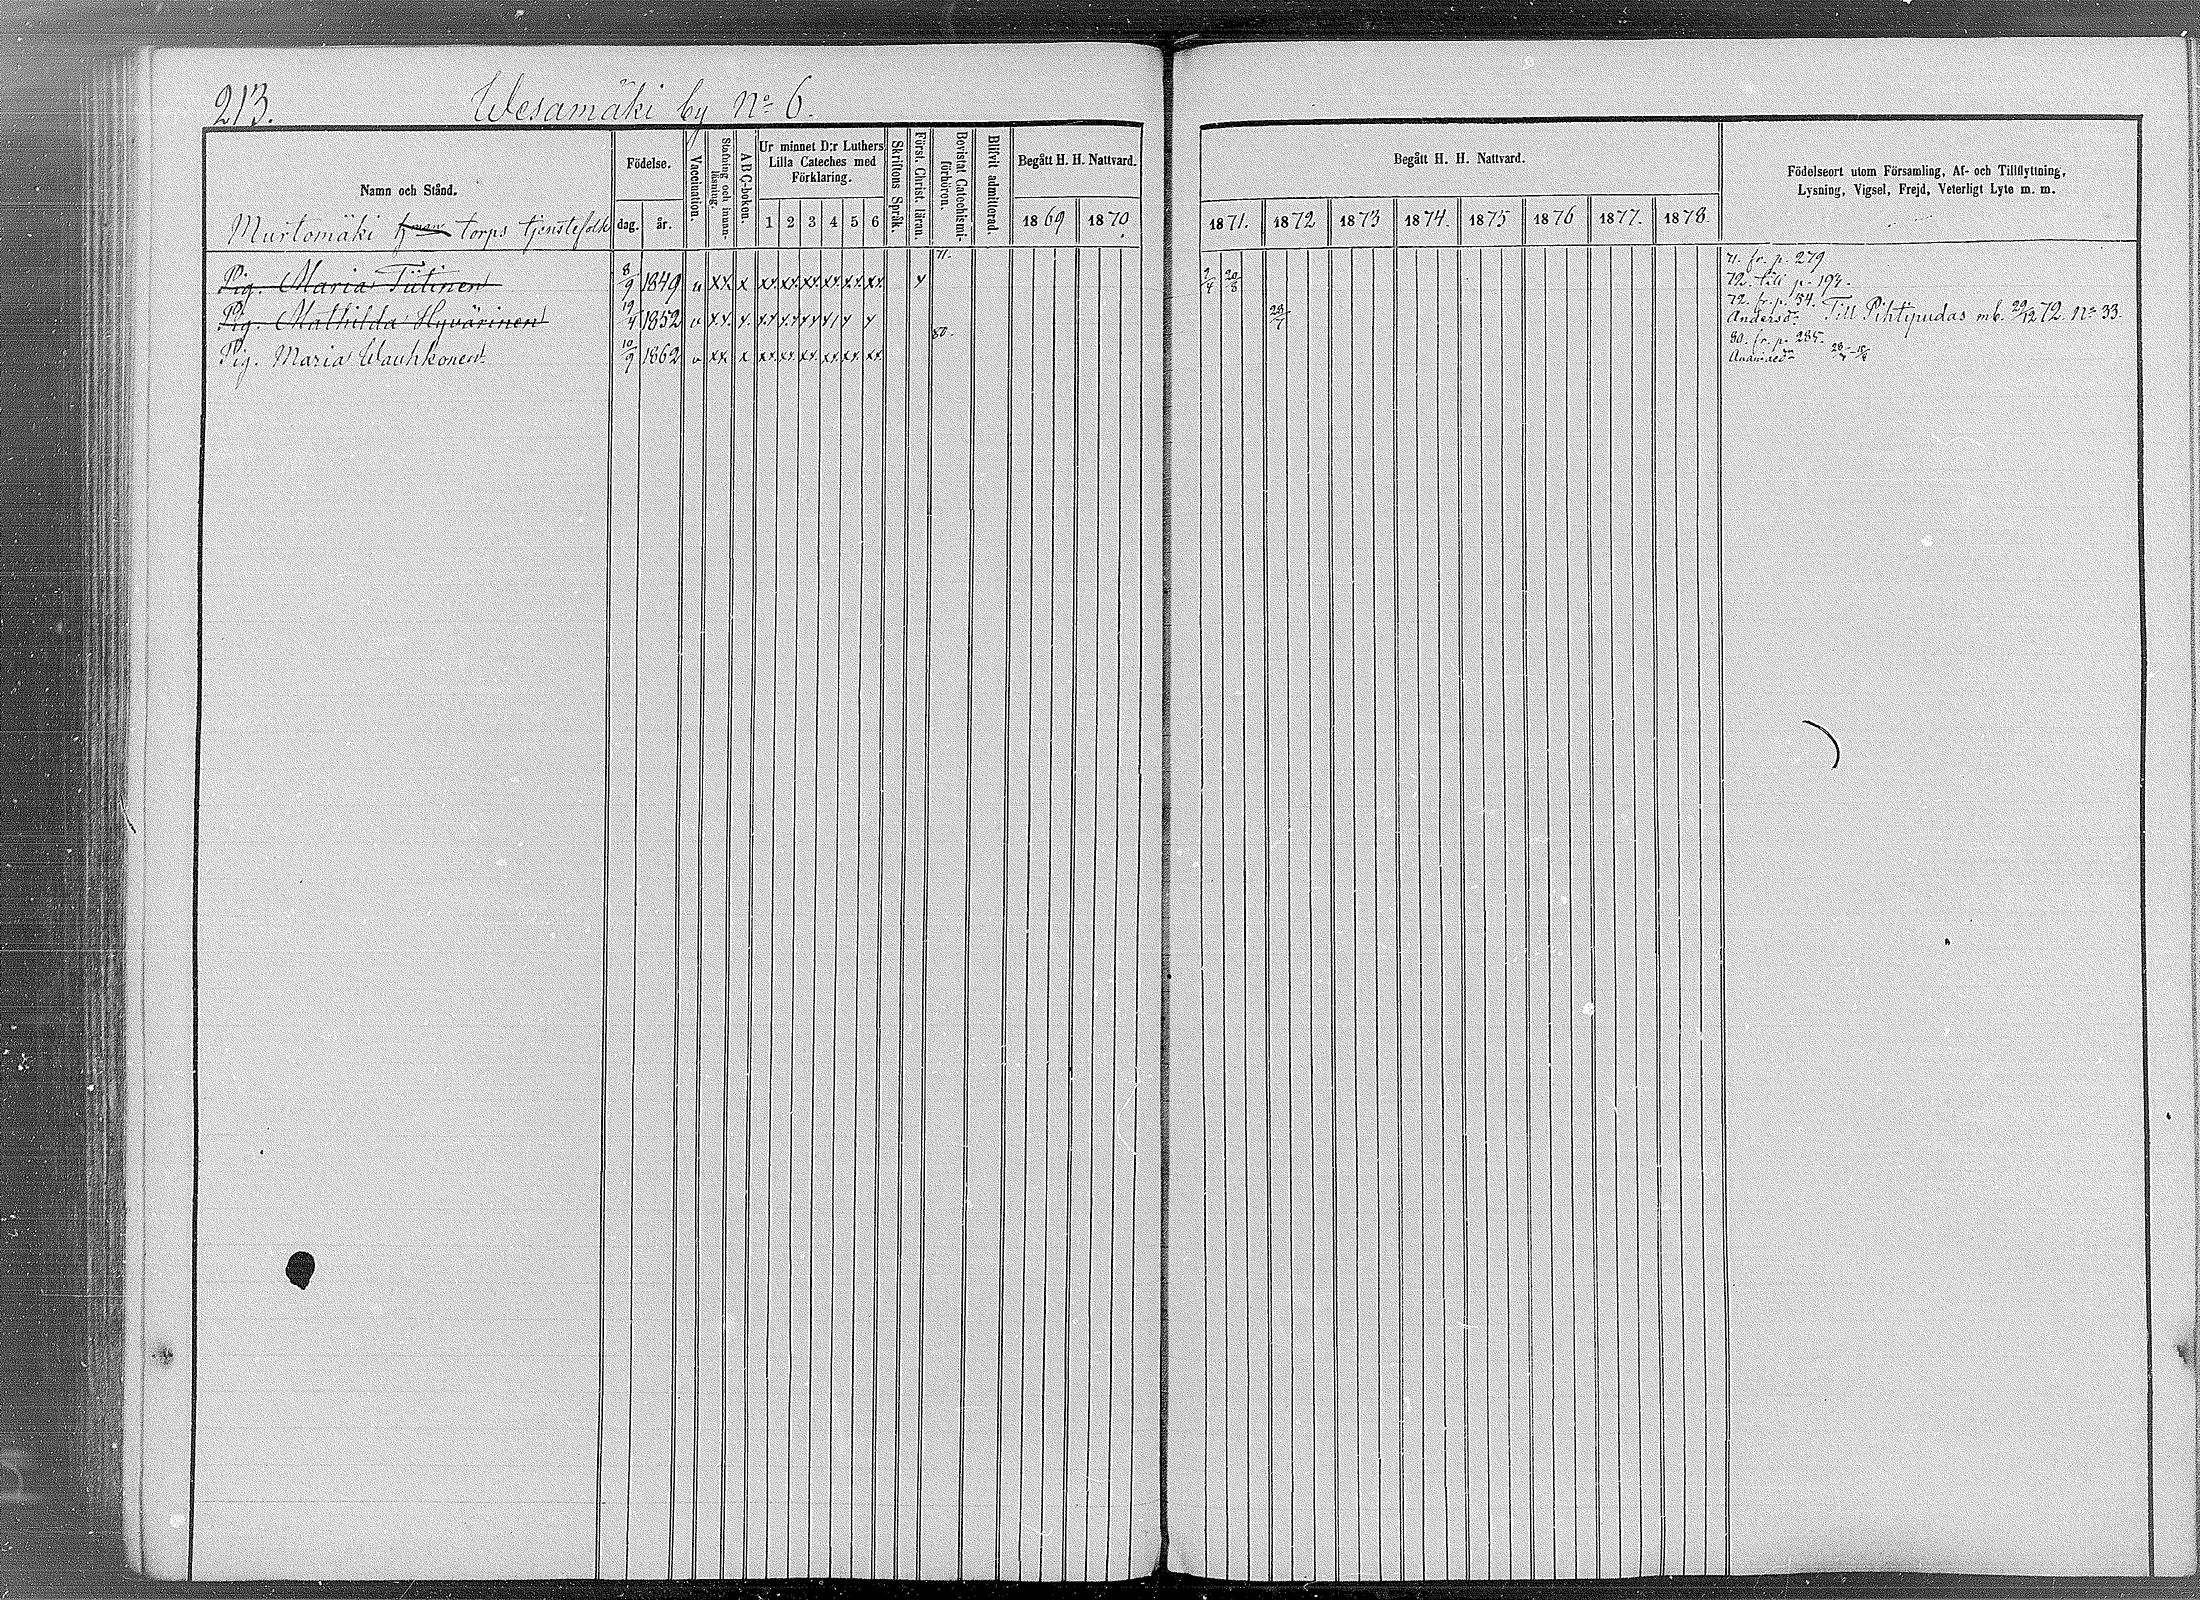 213. Wesamäki by No 6.
Namn och Stånd.
Murtomäki torps tjenstefolk
Födelse.
dag. år.
Vaccination.
Stafning och innan-läsning.
ABC-boken.
Ur minnet D:r Luthers
Lilla Cateches med
Förklaring.
1 2 3 4 5 6
Skriftens Språk.
Först. Christ. läran.
Bevistat Catechismi-förhören.
Blifvit admitterad.
Begått H. H. Nattvard.
1869 1870
Begått H. H. Nattvard.
1871. 1872 1873 1874. 1875 1876 1877. 1878.
Födelseort utom Församling, Af- och Tillflyttning,
Lysning, Vigsel, Frejd, Veterligt Lyte m. m.
71. 71. fr. p. 279
Pig. Maria Tiitinen 8/9 1849 v xx x xx xx xx xx xx xx x 2/4 20/8 72. till p. 193.
72. fr. p. 54.
Pig. Mathilda Hyvärinen 19/4 1852 v 28/7 Andersdr Till Pihtipudas mb. 29/12 72. No 33.
80. 80. fr. p. 285.
Pig. Maria Wauhkonen. 10/9 1862 v xx x xx xx xx xx xx xx